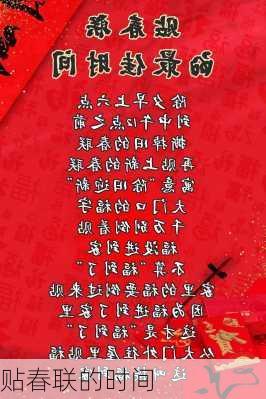 贴春联
的最佳时间
除夕早上六点
到中午12点之前
撕掉旧的春联
再贴上新的春联
寓意"除旧迎新"
大门口的福字
千万别倒着贴
福没进到家
不算"福到了"
家里的福要倒过来贴
因为福进到了家里
这才是"福到了"
从大门外往屋里贴福
贴春联的时间